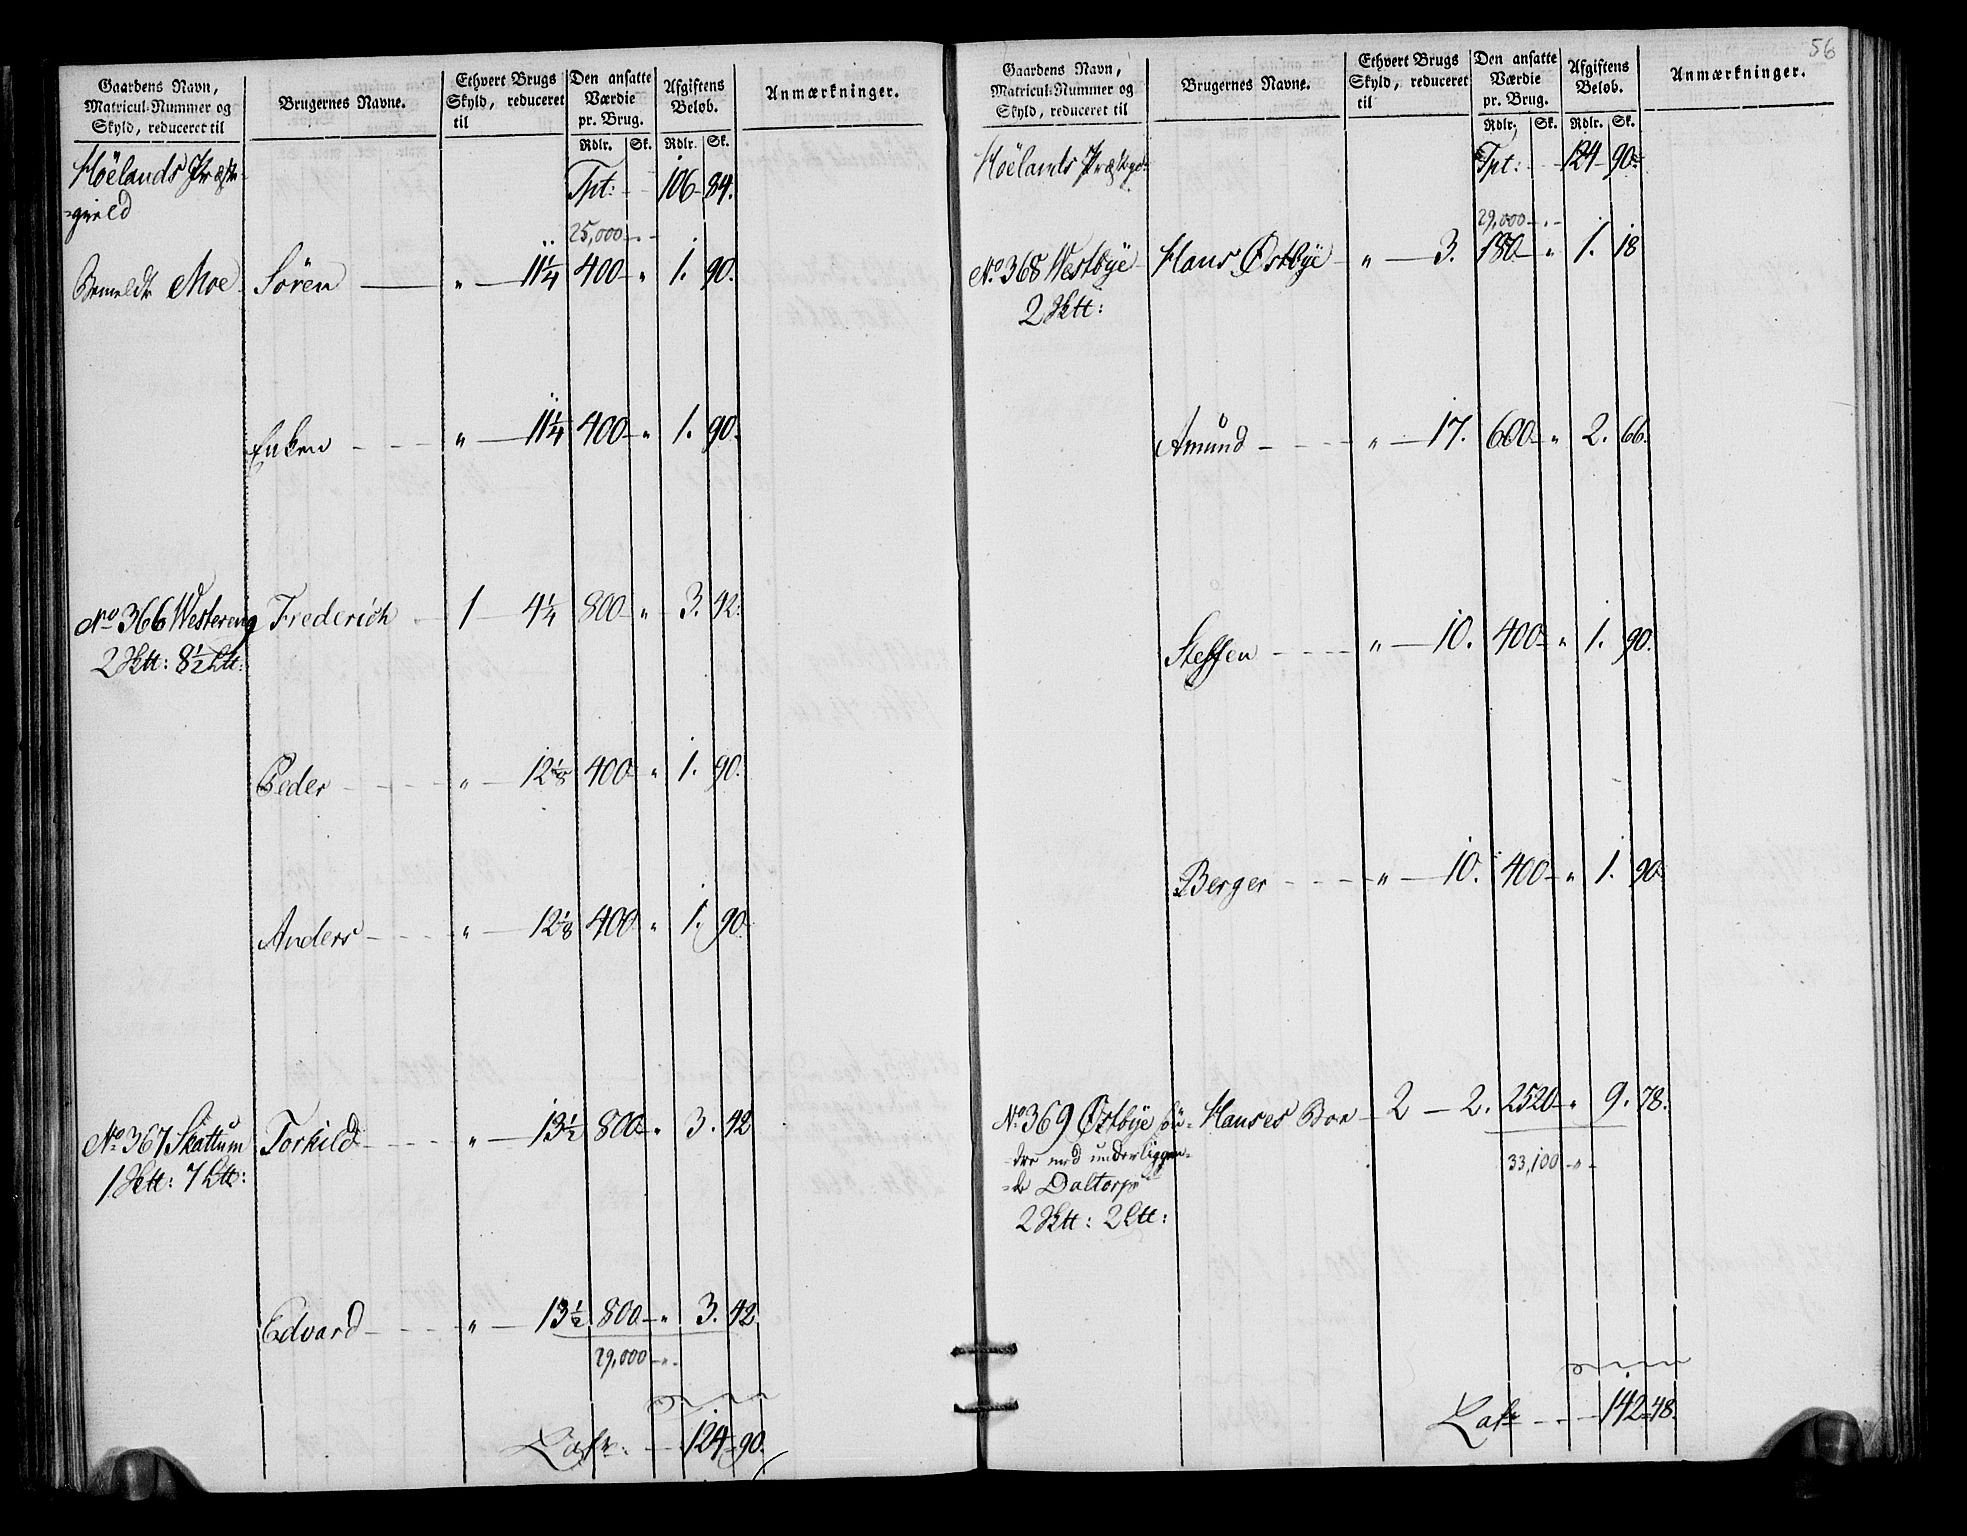 Gaardens Navn,
Matricul-Nummer og
Skyld, reduceret til
Brugernes Navne.
Ethvert Brugs
Skyld, reduceret
til
Den ansatte
Værdie
pr. Brug.
Rdlr. Sk.
Afgiftens
Beløb.
Rdlr. Sk.
Anmærkninger.
Höelands Præste-
=gield Tpt: 106 84.
25,000 - " -
Bemeldte Moe Sören " 11¼ 400 " 1. 90.
Enken " 11¼ 400 " 1. 90.
No 366 Westereng Frederich 1 4¼ 800 " 3. 42.
2 Sktt: 8½ Ltt:
Peder " 12⅛ 400 " 1. 90.
Anders " 12⅛ 400 " 1. 90.
No 367 Skattum Torkild " 13½ 800 " 3. 42
1 Sktt: 7 Ltt:
Edvard " 13½ 800 " 3. 42
29,000 - " -
Late: 124 90.
56
Gaardens Navn,
Matricul-Nummer og
Skyld, reduceret til
Brugernes Navne.
Ethvert Brugs
Skyld, reduceret
til
Den ansatte
Værdie
pr. Brug.
Rdlr. Sk.
Afgiftens
Beløb.
Rdlr. Sk.
Anmærkninger.
Höelands Præstgd: Tpt: 124 90
29,000 - " -
No 368 Westbÿe Hans Østbÿe " 3. 180 " 1. 18
2 Sktt:
Amund " 17. 600 " 2. 66.
Steffen " 10. 400 " 1. 90.
Berger " 10. 400 " 1. 90
No 369 Østbÿe sön= Hanses Boe 2 2. 2520 " 9. 78.
=dre med underliggen=
=de Daltorp 33,100 - " -
2 Sktt: 2 Ltt:
Late 142 48.